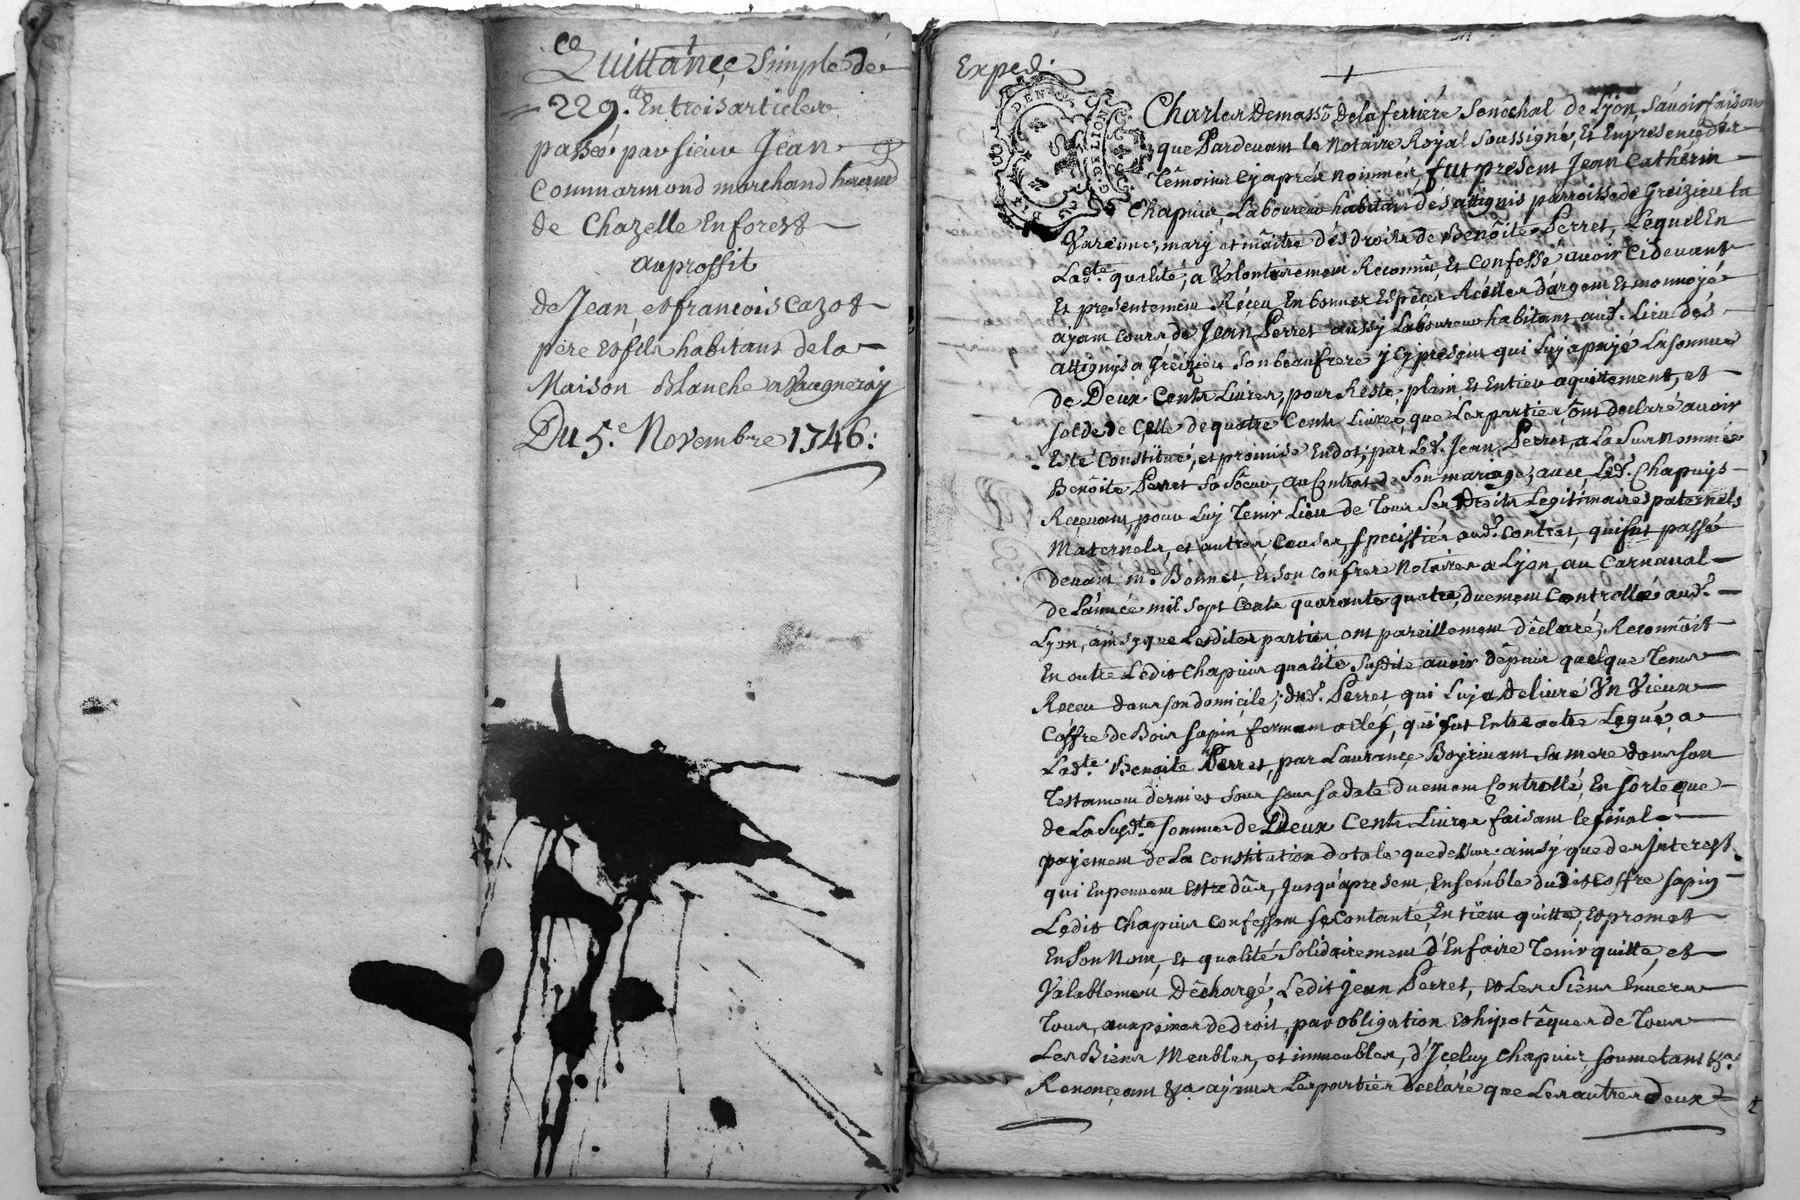 Quittance simple de
229.ᵗᵗ En trois articles
passé par sieur Jean
Commarmond marchand
de Chazelle En forest
au proffit
de Jean, et francois Cazot
pere Et fils habitans de la
Maison Blanche a Vaugneray
Du 5.e Novembre 1746:
Exped.
Charles Demasso de la ferriere Senêchal de Lyon, Savoir faisons
que Pardevant le Notaire Royal Soussigné, Et En presence des
Têmoins Cy aprés Nommés, fut present Jean Catherin
Chapuis Laboureur habitant des attignis parroisse de Greizieu la
Varenne, mary et mâitre dés droits de Benôite Perret, Lequel En
Ladte. qualité, a Volontairement Reconnû, Et Confessé avoir Cidevant
Et presentement Réçeu En bonnes Espêces Réélles d'argent Et monnoyé
ayant cours de Jean Perret aussy Laboureur habitant aud. Lieu dés
attignys a Greizieu Son beaufrere y Cy present qui Luy a payé La somme
de Deux Cents Livres, pour Reste, plain Et Entier aquitement, et
solde de Çelle de quatre Cents Livres, que Les parties ônt declaré avoir
Esté Constitué, et promise En dot, par Led. Jean Perret, a La Susnommée
Benôite Perret Sa Sôeur, au Contrat de Son mariage, avec Led. Chapuys
Reçevant, pour Luy Tenir Lieu de Tous Ses Droits Legitimaires paternels
Maternels, et autres Causes, specifiiés aud. Contrat, qui fut passé
devant me. Bonnet, Et Son confrere Notaires a Lyon, au Carnaval
de L'année mil Sept Cents quarante quatre, duement Controllé aud.
Lyon, ainsy que Lesdites parties ont pareillement dêclaré, Reconnôit
En outre Ledit Chapuis qualité Susdite avoir dêpuis quelque Tems
Reçeu dans son domiçile, dud. Perret, qui Luy a Delivré Vn Vieux
Côffre de Bois sapin fermant a clef, qui fut Entre autre Legué, a
Ladte. Benoite Perret, par Laurançe Boyrivant Sa mere dans son
Testament dernier sous sa date duement Controllé, En sorte que
de La Susdte. Somme de Deux Cents Livres faisant le final
payement de La Constitution dotale que dessus, ainsy que des Interest
qui En peuvent Estre dûs, Jusqu'a present, Ensemble dudit Coffre sapin
Ledit Chapuis Confessant Se Contante, En tient quitte, Et promet
En Son Nom, Et qualité Solidairement d'En faire Tenir quitte, et
Valablement Dêchargé, Ledit Jean Perret, Et Les Siens Envers
Tous, aux peines de droit, par obligation Et hipotêques de Tous
Les Biens Meubles, et immeubles, d'Jçeluy Chapuis, soumetant &a.
Renonçant &a. ayant Les parties declaré que Les autres deux